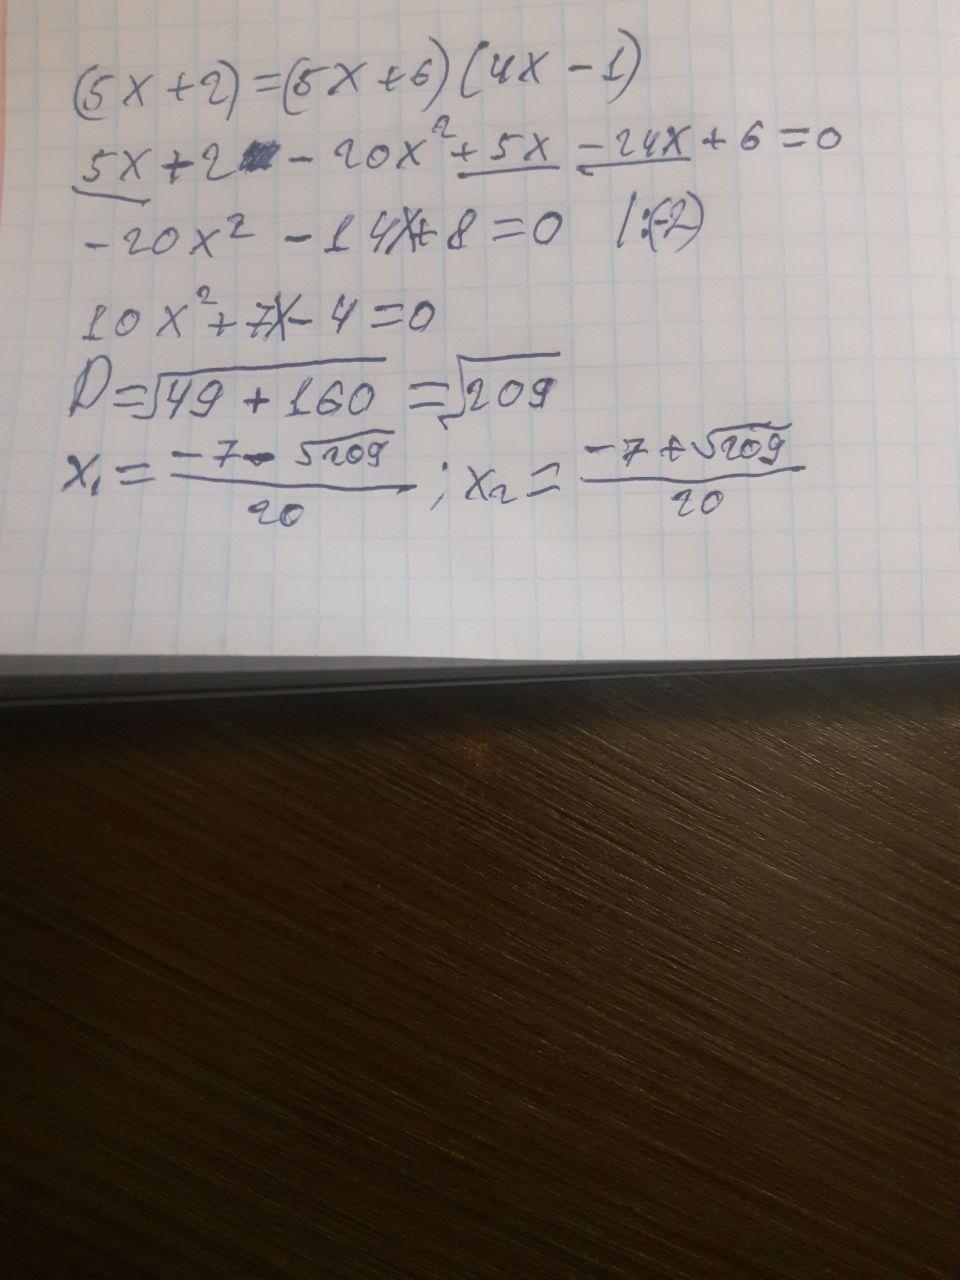 (5x+2)=(5x+6)(4x-1)
5x+2 - 20x²+5x - 24x+6=0
-20x² - 14x+8=0 |:(-2)
10x²+7x-4=0
D=√49+160 =√209
x₁= -7-√209 / 20 ; x₂= -7+√209 / 20